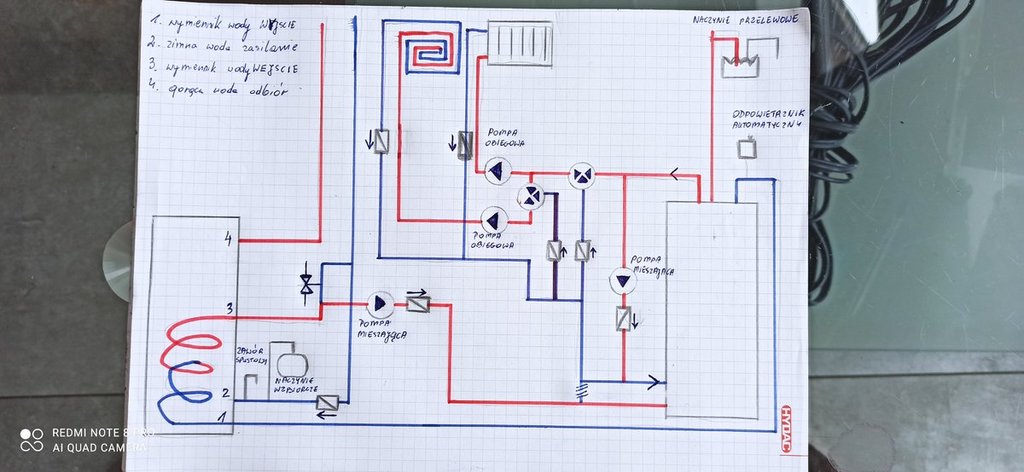 1. wymiennik wody WYJŚCIE
2. zimna woda zasilanie
3. wymiennik wody WEJŚCIE
4. gorąca woda odbiór
NACZYNIE PRZELEWOWE
ODPOWIETRZNIK
AUTOMATYCZNY
POMPA
OBIEGOWA
POMPA
OBIEGOWA
POMPA
MIESZAJĄCA
POMPA
MIESZAJĄCA
4
3
2
1
ZAWÓR
SPUSTOWY
NACZYNIE
WZBIORCZE
HYDAC
REDMI NOTE 8 PRO
AI QUAD CAMERA